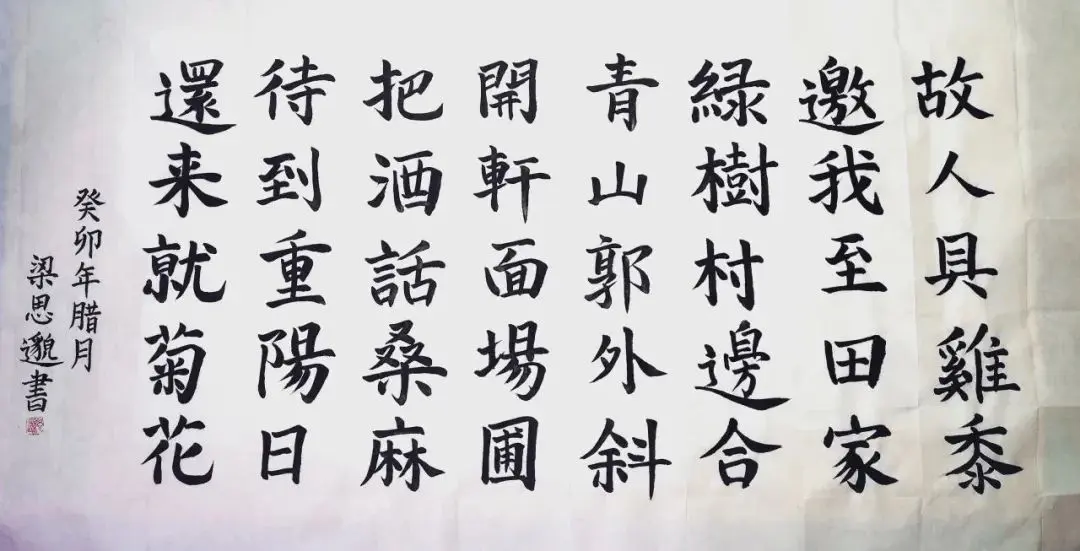 故人具雞黍
邀我至田家
綠樹村邊合
青山郭外斜
開軒面場圃
把酒話桑麻
待到重陽日
還来就菊花
癸卯年腊月
梁思邈書